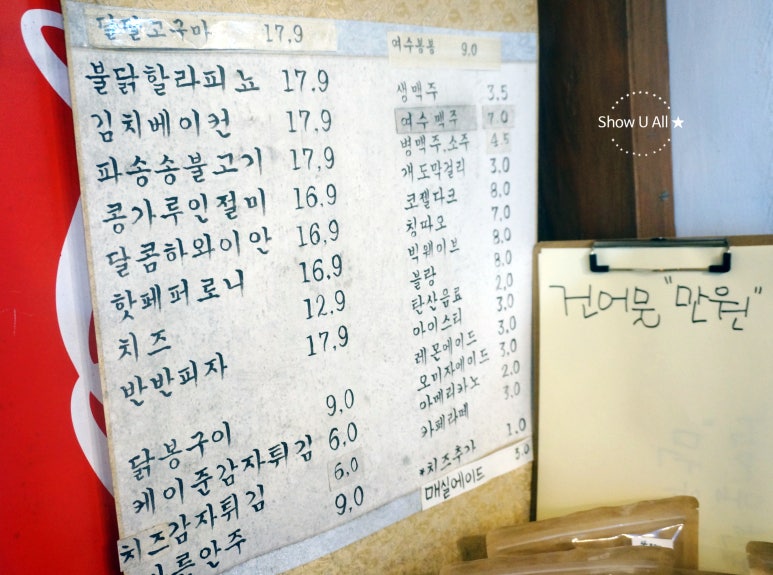 달달고구마 17.9
불닭할라피뇨 17.9
김치베이컨 17.9
파송송불고기 17.9
콩가루인절미 16.9
달콤하와이안 16.9
핫페퍼로니 16.9
치즈 12.9
반반피자 17.9
닭봉구이 9.0
케이준감자튀김 6.0
치즈감자튀김 6.0
른안주 9.0
여수봉봉 9.0
생맥주 3.5
여수맥주 7.0
병맥주,소주 4.5
개도막걸리 3.0
코젤다크 8.0
칭따오 7.0
빅웨이브 8.0
블랑 8.0
탄산음료 2.0
아이스티 3.0
레몬에이드 3.0
오미자에이드 3.0
아메리카노 2.0
카페라떼 3.0
*치즈추가 1.0
매실에이드 3.0
Show U All★
건어물 "만원"